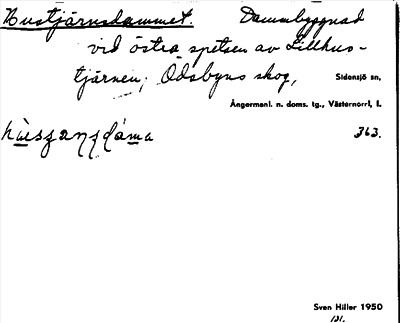 Hustjärnsdammet. Dammbyggnad
vid östra spetsen av Lillhus-
tjärnen, Ödsbyns skog, Sidensjö sn,
Ångermanl. n. doms. tg., Västernorrl, l.
363.
Sven Hiller 1950